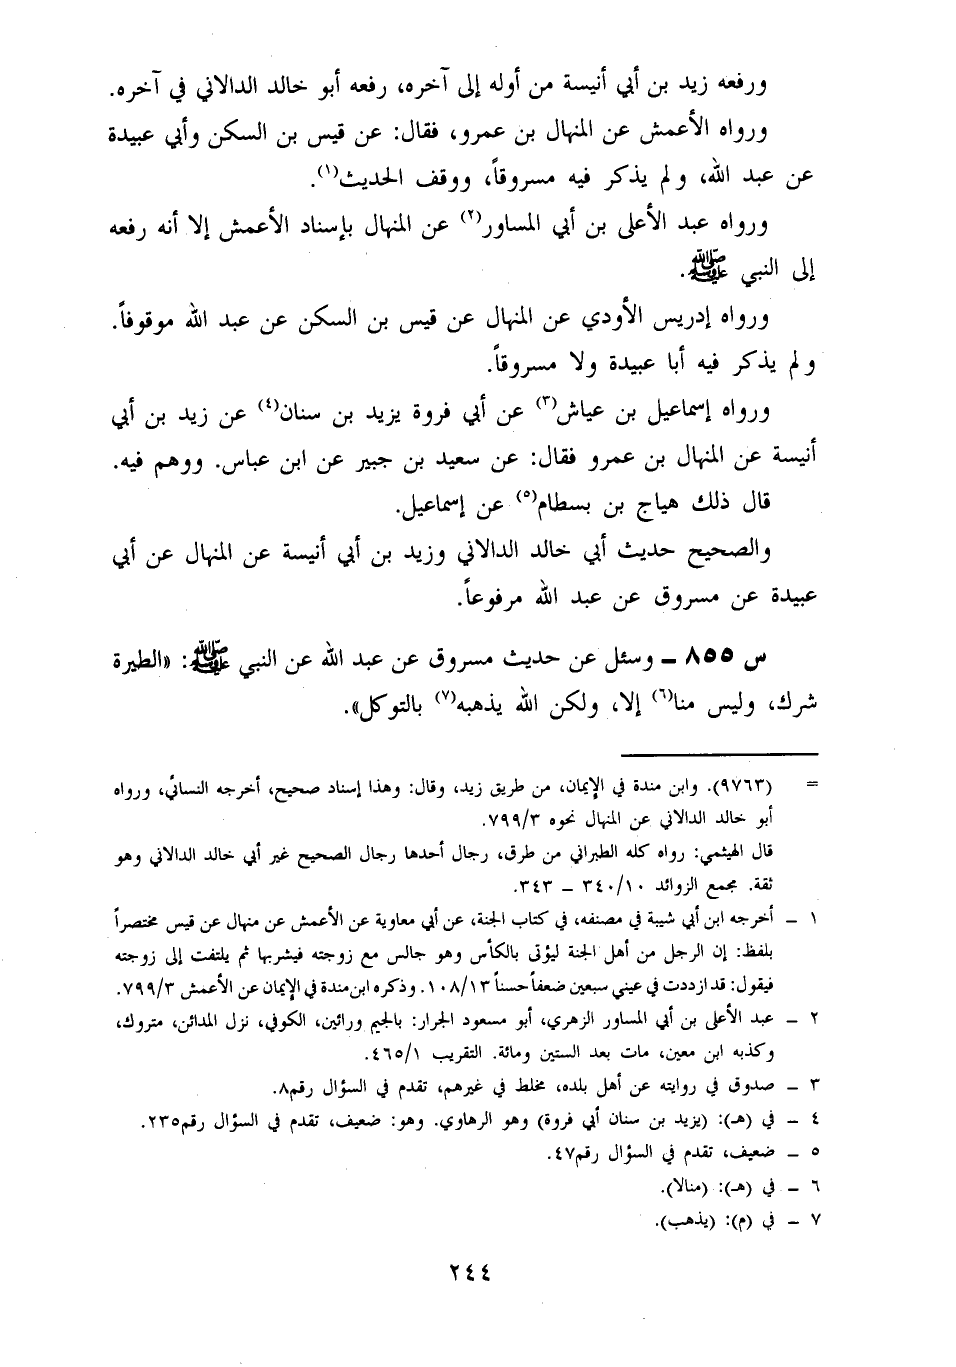 ورفعه زيد بن أبي أنيسة من أوله إلى آخره، رفعه أبو خالد الدالاني في آخره.
ورواه الأعمش عن المنهال بن عمرو، فقال: عن قيس بن السكن وأبي عبيدة
عن عبد الله، ولم يذكر فيه مسروقاً، ووقف الحديث(١).
ورواه عبد الأعلى بن أبي المساور(٢) عن المنهال بإسناد الأعمش إلا أنه رفعه
إلى النبي ﷺ.
ورواه إدريس الأودي عن المنهال عن قيس بن السكن عن عبد الله موقوفاً.
ولم يذكر فيه أبا عبيدة ولا مسروقاً.
ورواه إسماعيل بن عياش(٣) عن أبي فروة يزيد بن سنان(٤) عن زيد بن أبي
أنيسة عن المنهال بن عمرو فقال: عن سعيد بن جبير عن ابن عباس. ووهم فيه.
قال ذلك هياج بن بسطام(٥) عن إسماعيل.
والصحيح حديث أبي خالد الدالاني وزيد بن أبي أنيسة عن المنهال عن أبي
عبيدة عن مسروق عن عبد الله مرفوعاً.
س ٨٥٥ ــ وسئل عن حديث مسروق عن عبد الله عن النبي ﷺ: «الطيرة
شرك، وليس منا(٦) إلا، ولكن الله يذهبه(٧) بالتوكل».
= (٩٧٦٣). وابن مندة في الإيمان، من طريق زيد، وقال: وهذا إسناد صحيح، أخرجه النسائي، ورواه
أبو خالد الدالاني عن المنهال نحوه ٧٩٩/٣.
قال الهيثمي: رواه كله الطبراني من طرق، رجال أحدها رجال الصحيح غير أبي خالد الدالاني وهو
ثقة. مجمع الزوائد ٣٤٠/١٠ ــ ٣٤٣.
١ ــ أخرجه ابن أبي شيبة في مصنفه، في كتاب الجنة، عن أبي معاوية عن الأعمش عن منهال عن قيس مختصراً
بلفظ: إن الرجل من أهل الجنة ليؤتى بالكأس وهو جالس مع زوجته فيشربها ثم يلتفت إلى زوجته
فيقول: قد ازددت في عيني سبعين ضعفاً حسناً ١٠٨/١٣. وذكره ابن مندة في الإيمان عن الأعمش ٧٩٩/٣.
٢ ــ عبد الأعلى بن أبي المساور الزهري، أبو مسعود الجرار: بالجيم ورائين، الكوفي، نزل المدائن، متروك،
وكذبه ابن معين، مات بعد الستين ومائة. التقريب ٤٦٥/١.
٣ ــ صدوق في روايته عن أهل بلده، مخلط في غيرهم، تقدم في السؤال رقم٨.
٤ ــ في (هـ): (يزيد بن سنان أبي فروة) وهو الرهاوي. وهو: ضعيف، تقدم في السؤال رقم٢٣٥.
٥ ــ ضعيف، تقدم في السؤال رقم٤٧.
٦ ــ في (هـ): (منالا).
٧ ــ في (م): (يذهب).
٢٤٤